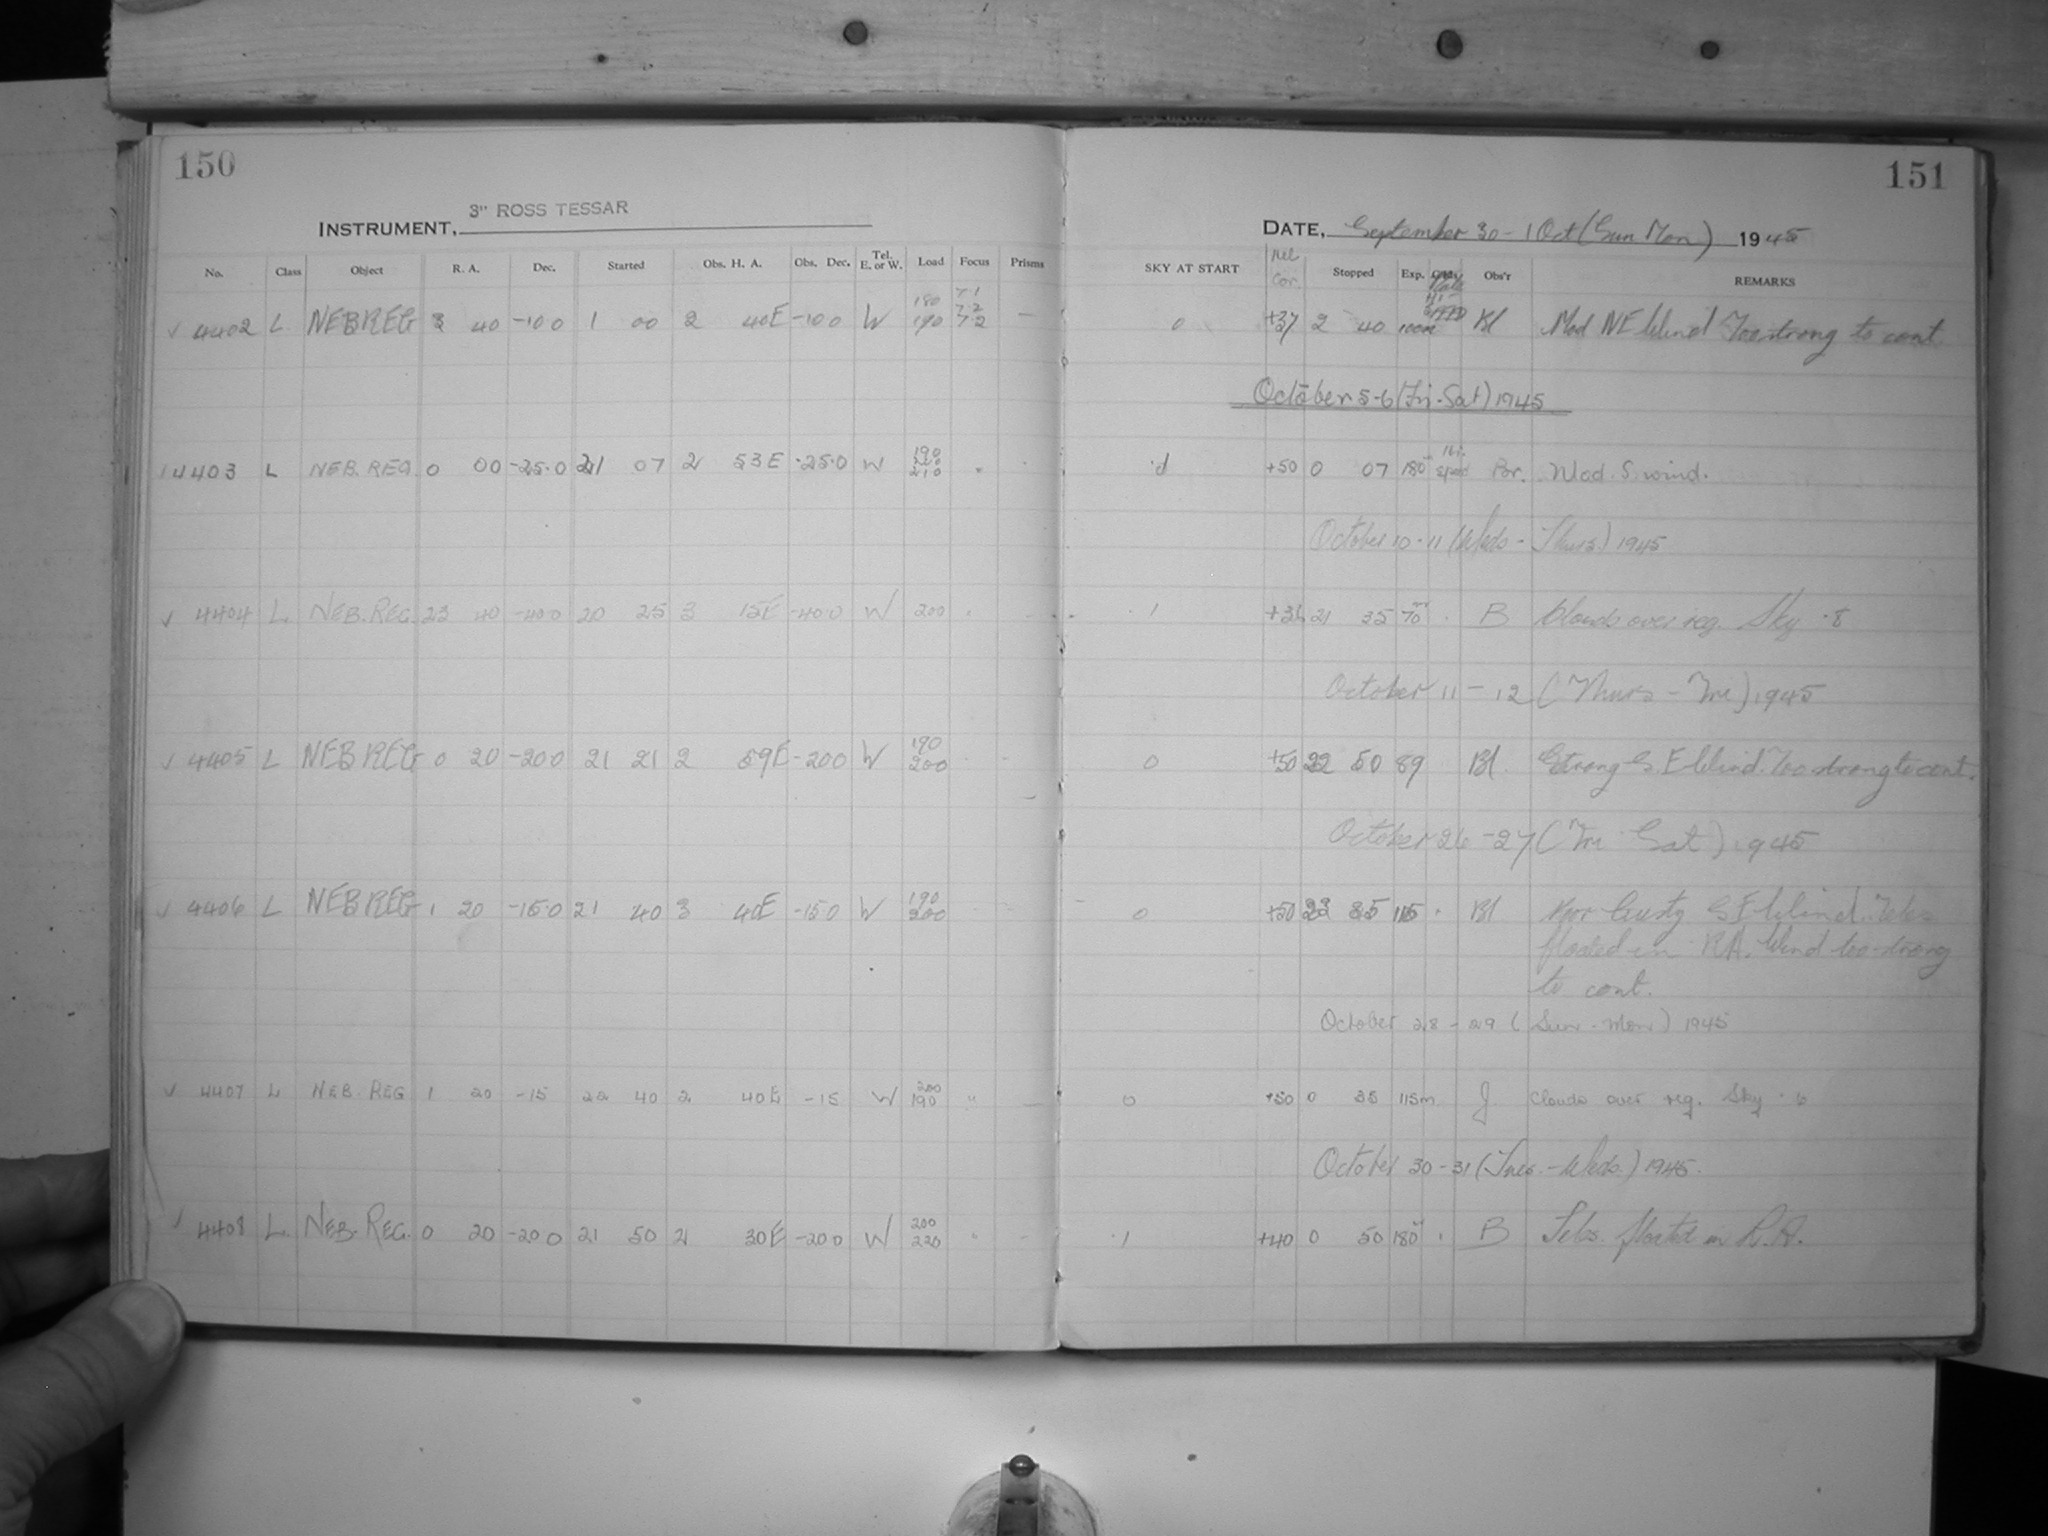 150
3" ROSS TESSAR
INSTRUMENT,
No. Class Object R. A. Dec. Started Obs. H. A. Obs. Dec. Tel. E. or W. Load Focus Prisms
4402 L NEB REG 3 40 -100 1 00 2 40E -100 W 180 190 7.1 7.2 7.2 —
4403 L NEB. REG. 0 00 -25.0 21 07 2 53E -25.0 W 190 210
4404 L. NEB. REG. 23 40 -400 20 25 3 15E -400 W 200
4405 L NEB REG 0 20 -200 21 21 2 59E -200 W 190 200
4406 L NEB REG 1 20 -15.0 21 40 3 40E -150 W 190 200
4407 L NEB. REG 1 20 -15 22 40 2 40E -15 W 200 190 " —
4408 L. NEB. REG. 0 20 -200 21 50 2 30E -200 W 200 220 " —
151
DATE, September 30 - 1 Oct (Sun Mon) 1945
SKY AT START Rel Cor. Stopped Exp. Plate Obs'r REMARKS
0 +37 2 40 100m Bl Mod NE Wind Too strong to cont
October 5-6 (Fri-Sat) 1945
+50 0 07 180 Par. Mod. S. wind.
October 10-11 (Weds - Thurs) 1945
.1 21 35 70m B Clouds over reg. Sky .8
October 11-12 (Thurs - Fri) 1945
0 +50 22 50 89 Bl Strong S. E Wind. Too strong to cont.
October 26-27 (Fri Sat) 1945
0 +50 23 35 115 Bl Gusty S E Wind. Teles
floated in RA. Wind too strong
to cont.
October 28-29 (Sun-Mon) 1945
0 +50 0 35 115m J Clouds over reg. Sky
October 30-31 (Tues.-Weds.) 1945.
.1 +40 0 50 180m B Teles. floated in R.A.